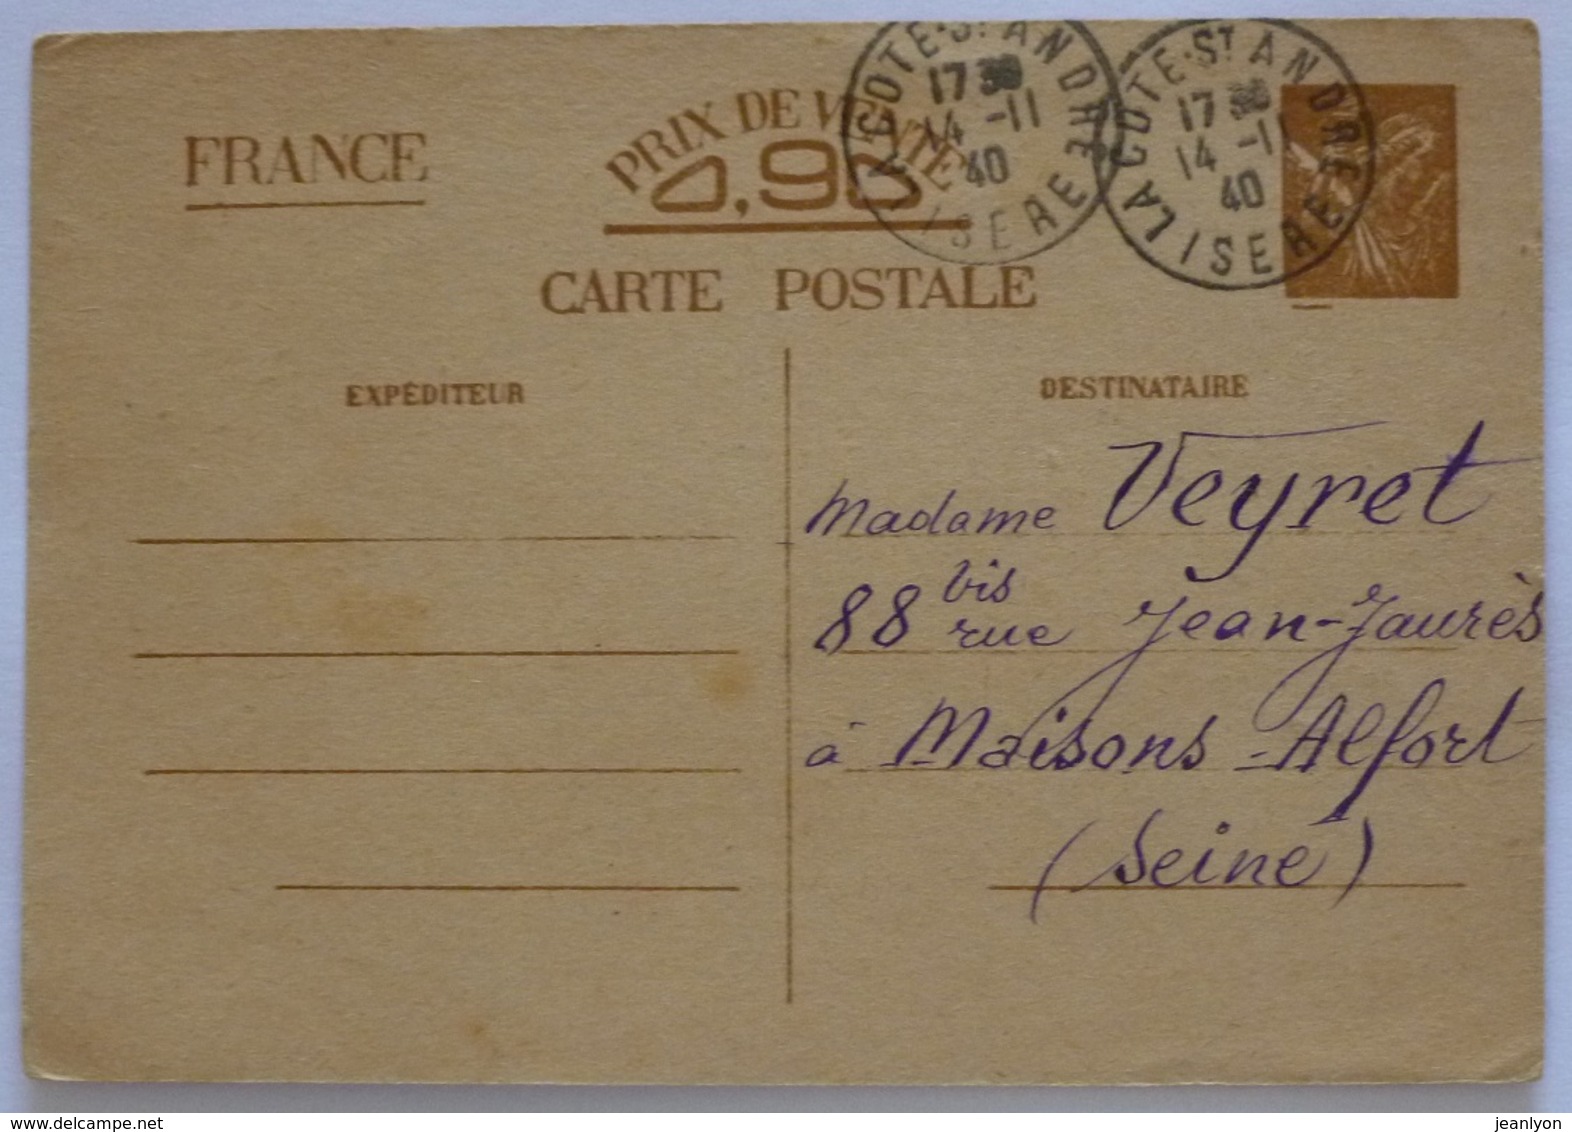 FRANCE
PRIX DE VENTE
0,90
CARTE POSTALE
LA COTE-ST ANDRE
17 30
14 -11
40
ISERE
LA COTE-ST ANDRE
17 30
14 -11
40
ISERE
EXPÉDITEUR
DESTINATAIRE
Madame Veyret
88 bis rue Jean-Jaurès
à Maisons-Alfort
(Seine)
jeanlyon